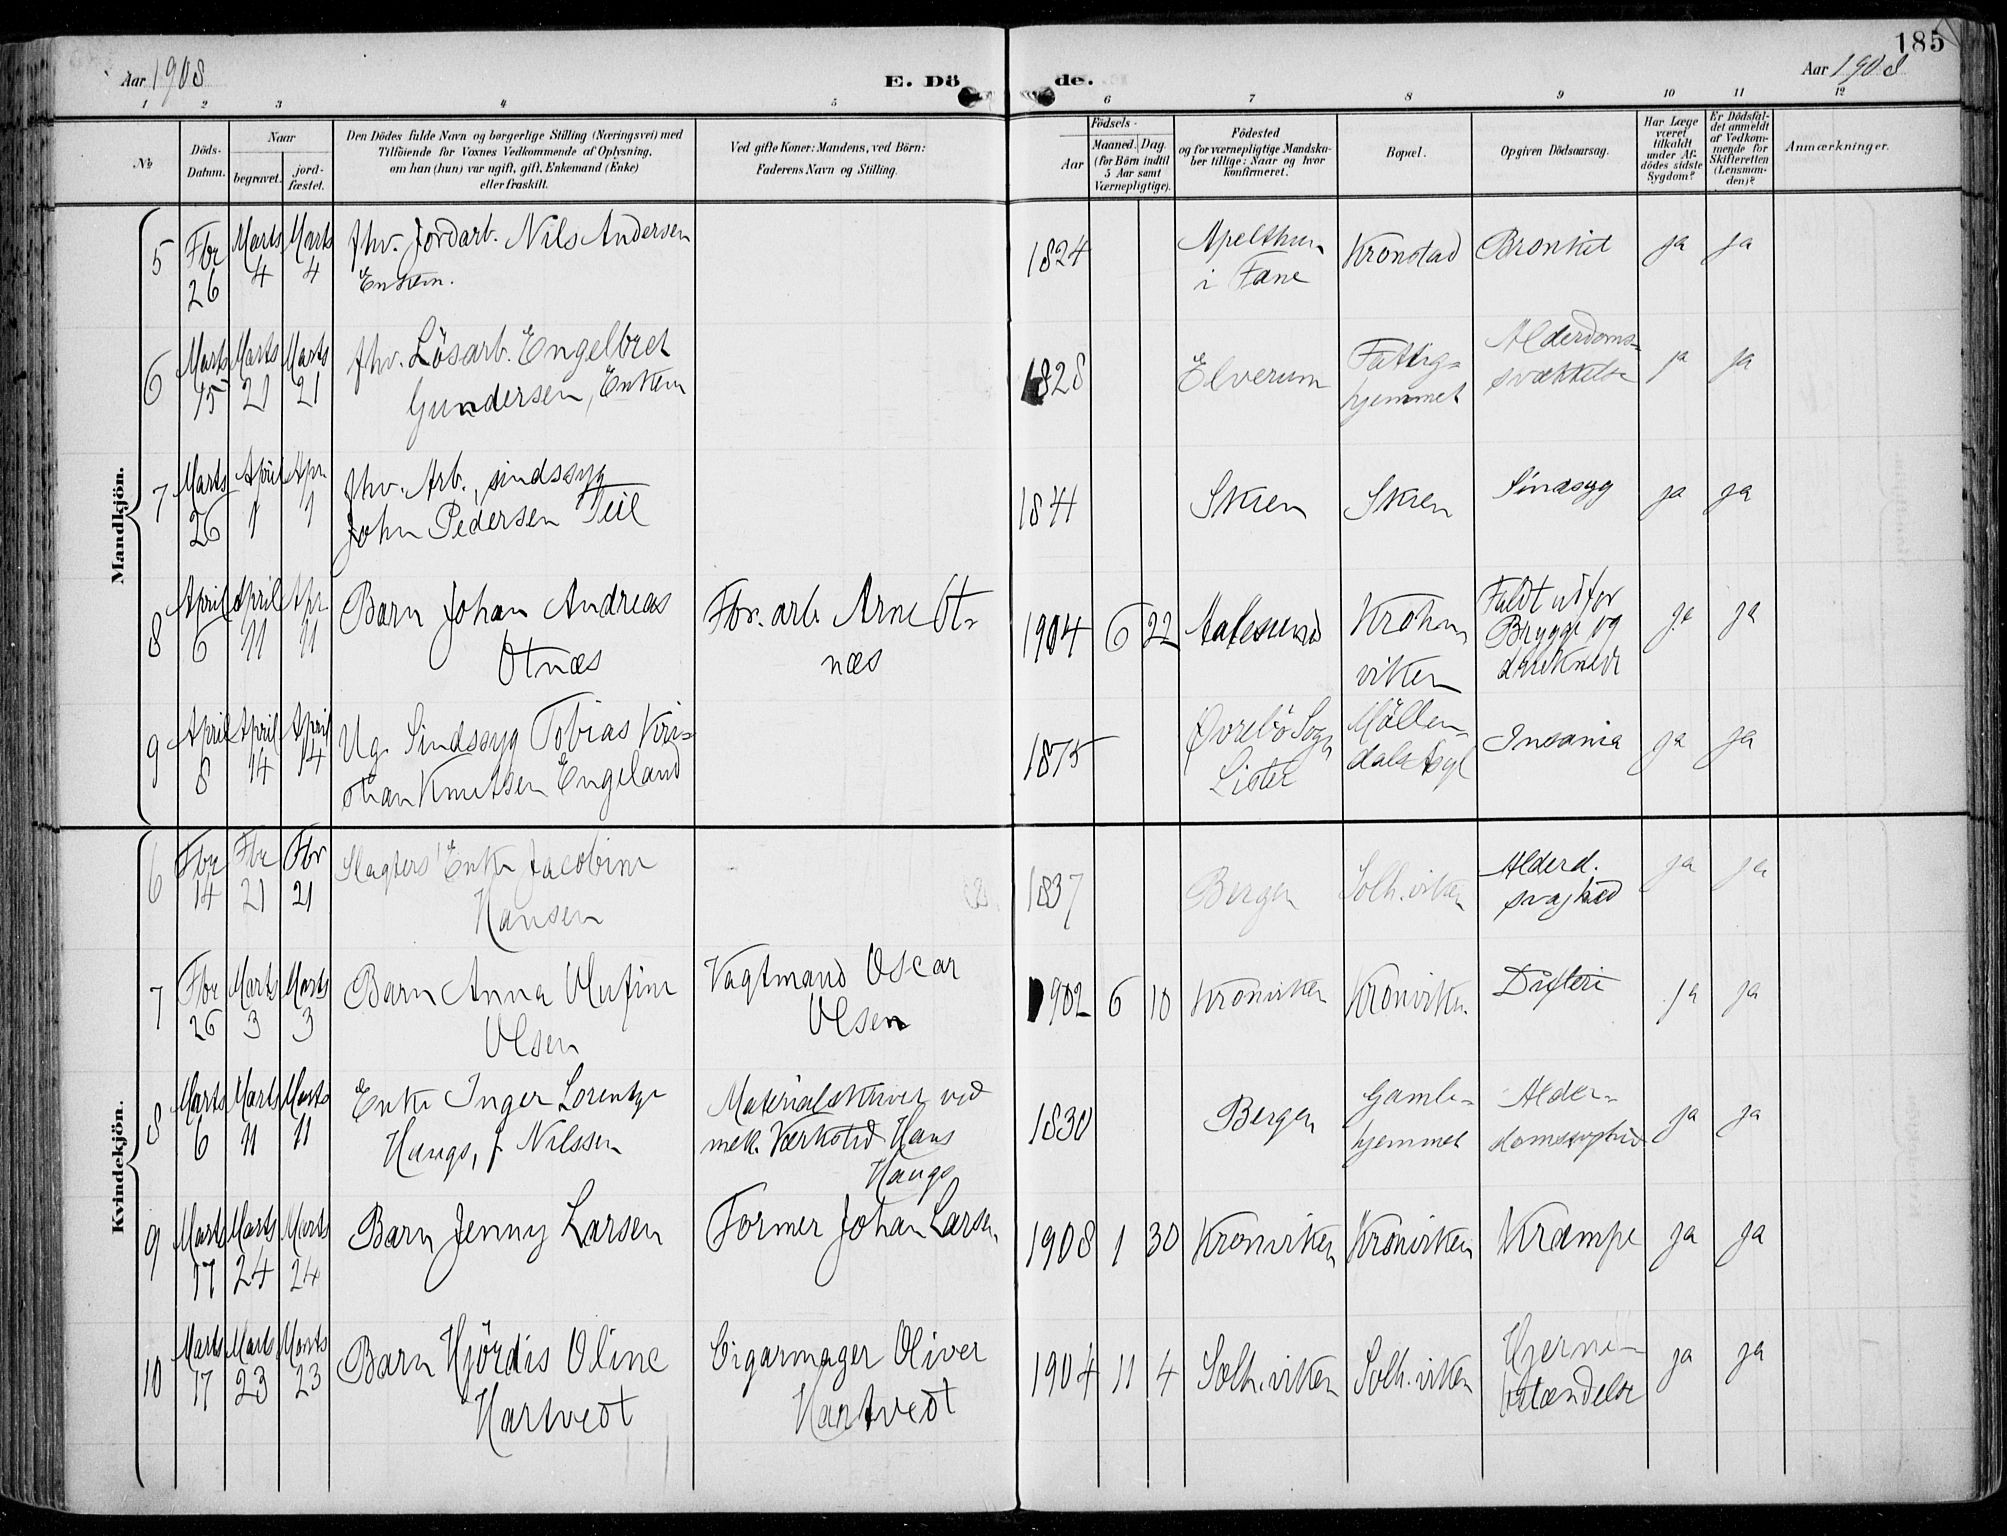 185
Aar 1908
E. Döde.
Aar 1908
1 2 3 4 5 6 7 8 9 10 11 12
No
Döds-Datum.
Naar
begravet.
jord-fæstet.
Den Dödes fulde Navn og borgerlige Stilling (Næringsvei) med
Tilföiende for Voxnes Vedkommende af Oplysning,
om han (hun) var ugift, gift, Enkemand (Enke)
eller fraskilt.
Ved gifte Koner: Mandens, ved Börn:
Faderens Navn og Stilling.
Födsels-
Aar
Maaned. Dag.
(for Börn indtil
5 Aar samt
Værnepligtige).
Födested
og for værnepligtige Mandska-
ber tillige: Naar og hvor
konfirmeret.
Bopæl.
Opgiven Dödsaarsag.
Har Læge
været
tilkaldt
under Af-
dödes sidste
Sygdom?
Er Dödsfal-
det anmeldt
af Vedkom-
mende for
Skifteretten
(Lensman-
den)?
Anmærkninger.
Mandkjön.
5 Fbr 26 Marts 4 Marts 4 fhv. Jordarb. Nils Andersen
Enkem.
1824 Apelthun i Fane Kronstad Bronkit ja ja
6 Marts 15 Marts 21 Marts 21 fhv. Lösarb. Engelbret
Gundersen, Enkem
1828 Elverum Fattig-hjemmet Alderdoms-svækkelse ja ja
7 Marts 26 April 1 Apr. 1 fhv. Arb., sindssyg
John Pedersen Teil
1841 Skien Skien Sindsyg ja ja
8 April 6 April 11 Apr. 11 Barn Johan Andreas
Otnæs
For. arb. Arne Ot-
næs
1904 6 22 Aalesund Krohnviken Faldt udfor
Brygge og
druknede ja ja
9 April 8 April 14 April 14 Ug. Sindssyg Tobias Kri-
stian Knutsen Engeland
1875 Øvrebö Sogn
Lister
Möllen-
dals Asyl
Insania ja ja
Kvindekjön.
6 Fbr 14 Fbr 21 Fbr 21 Slagters Enke Jacobine
Hansen
1837 Bergen Solh.viken Alderd.
svaghed ja ja
7 Fbr 26 Marts 3 Marts 3 Barn Anna Olufine
Olsen
Vagtmand Oscar
Olsen
1902 6 10 Kronviken Kronviken Difteri ja ja
8 Marts 6 Marts 11 Marts 11 Enke Inger Lorentze
Haugs, f. Nilssen
Materialskriver ved
mek. Værksted Hans
Haugs
1830 Bergen Gamle-
hjemmet
Alder-
domssvaghed ja ja
9 Marts 17 Marts 24 Marts 24 Barn Jenny Larsen
Former Johan Larsen
1908 1 30 Kronviken Kronviken Krampe ja ja
10 Marts 17 Marts 23 Marts 23 Barn Hjördis Oline
Hartvedt
Cigarmager Oliver
Hartvedt
1904 11 4 Solh.viken Solh.viken Hjerne-
betændelse ja ja